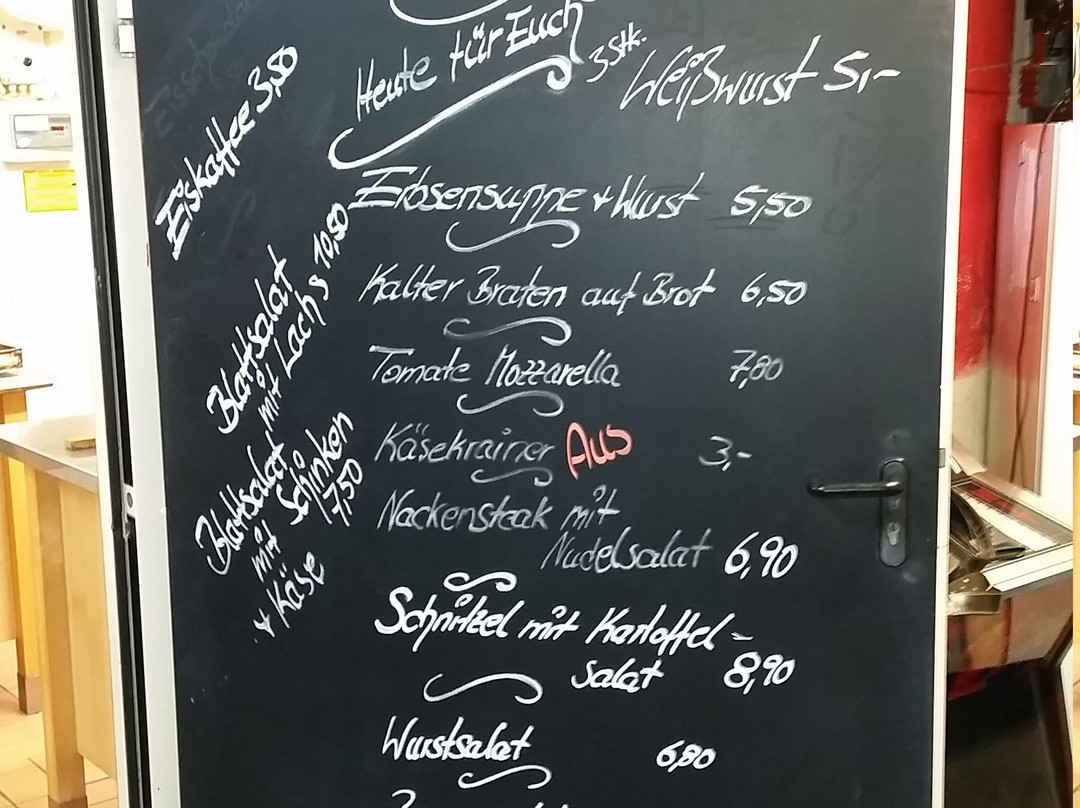 Heute für Euch
3 Stk. Weißwurst 5,-
Erbsensuppe + Wurst 5,50
Kalter Braten auf Brot 6,50
Tomate Mozzarella 7,80
Käsekrainer Aus 3,-
Nackensteak mit
Nudelsalat 6,90
Schnitzel mit Kartoffel-
salat 8,90
Wurstsalat 6,80
Eiskaffee 3,50
Blattsalat
mit Lachs 10,50
Blattsalat
mit Schinken
+ Käse 7,50